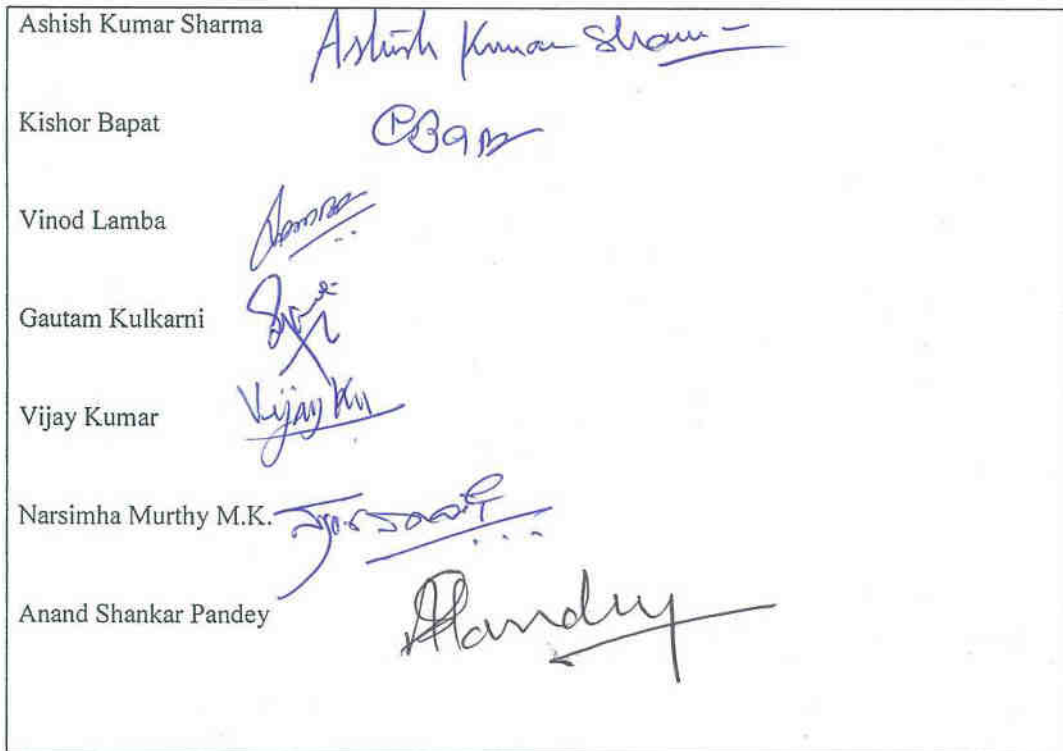 Ashish Kumar Sharma Ashish Kumar Sharma
Kishor Bapat
Vinod Lamba
Gautam Kulkarni
Vijay Kumar Vijay Ku
Narsimha Murthy M.K.
Anand Shankar Pandey APandey